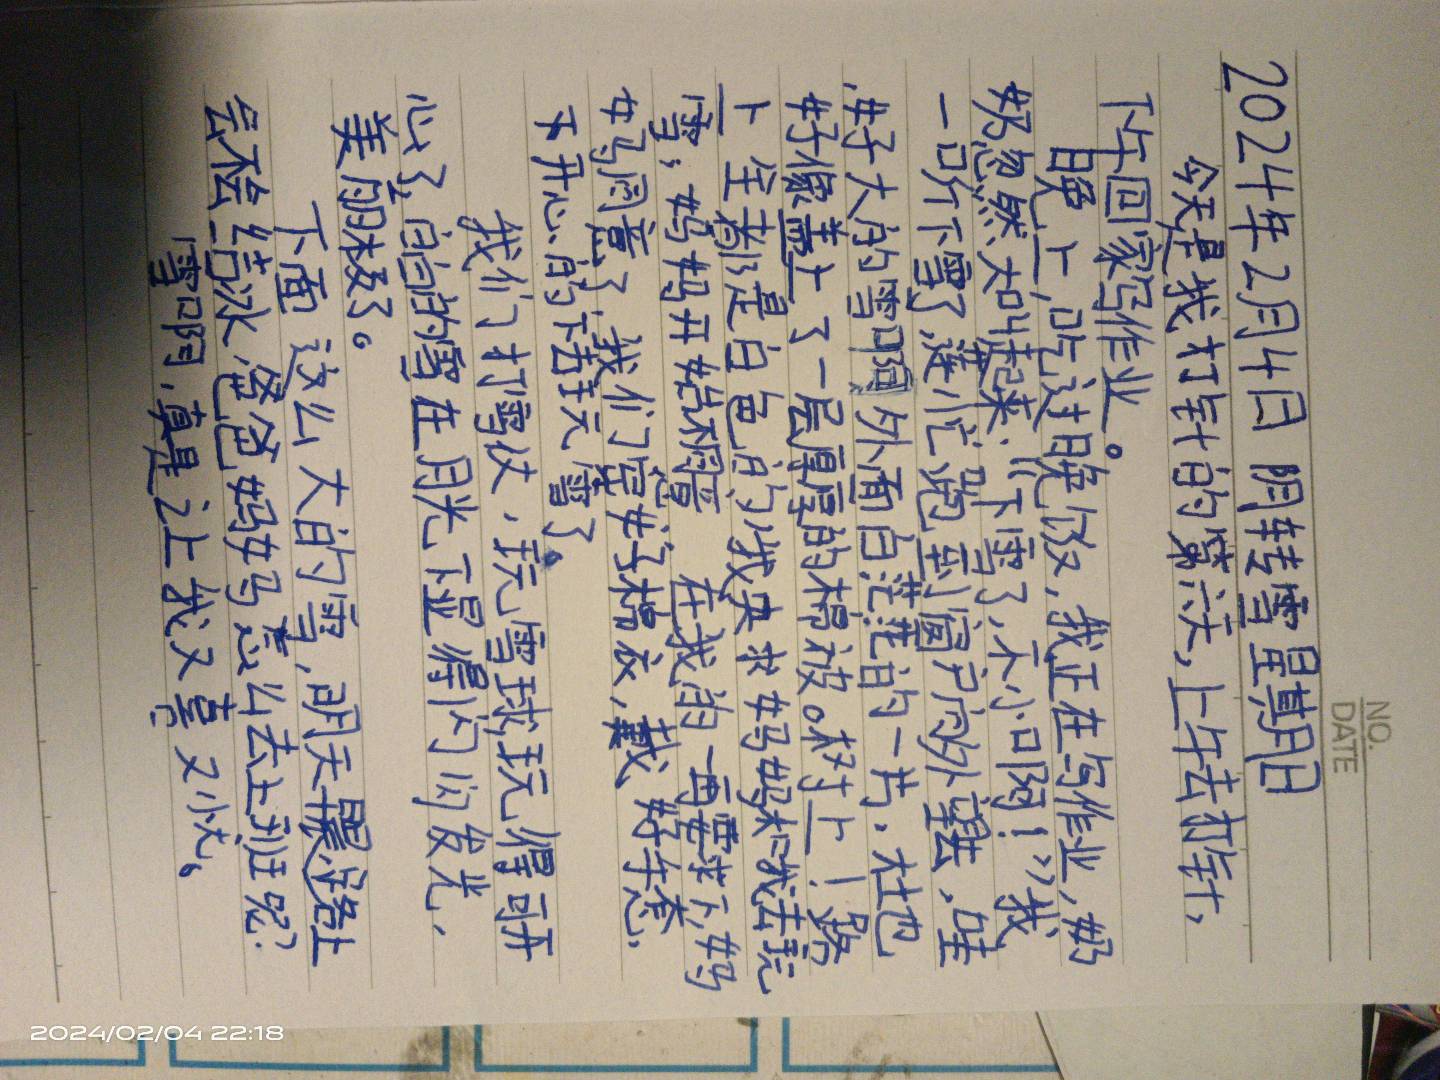 NO.
DATE
2024年2月4日 阴转雪 星期日
今天是我打针的第六天,上午去打针,
下午回家写作业。
晚上,吃过晚饭,我正在写作业,奶
奶忽然大叫起来:“下雪了,小心啊!”我
一听下雪了,连忙跑到窗户向外望去,哇
好大的雪啊 外面白茫茫的一片,大地
好像盖上了一层厚厚的棉被。树上!路
上全都是白色的,我央求妈妈和我去玩
雪,妈妈开始不同意 在我的一再要求下,妈
妈同意了,我们穿好棉衣,戴好手套,
开心的下去玩雪了。
我们打雪仗,玩雪球玩得可开
心了,白白的雪在月光下显得闪闪发光,
美丽极了。
下面这么大的雪,明天早晨路上
会不会结冰,爸爸妈妈怎么去上班呢?
雪啊,真是让我又喜又忧。
2024/02/04 22:18